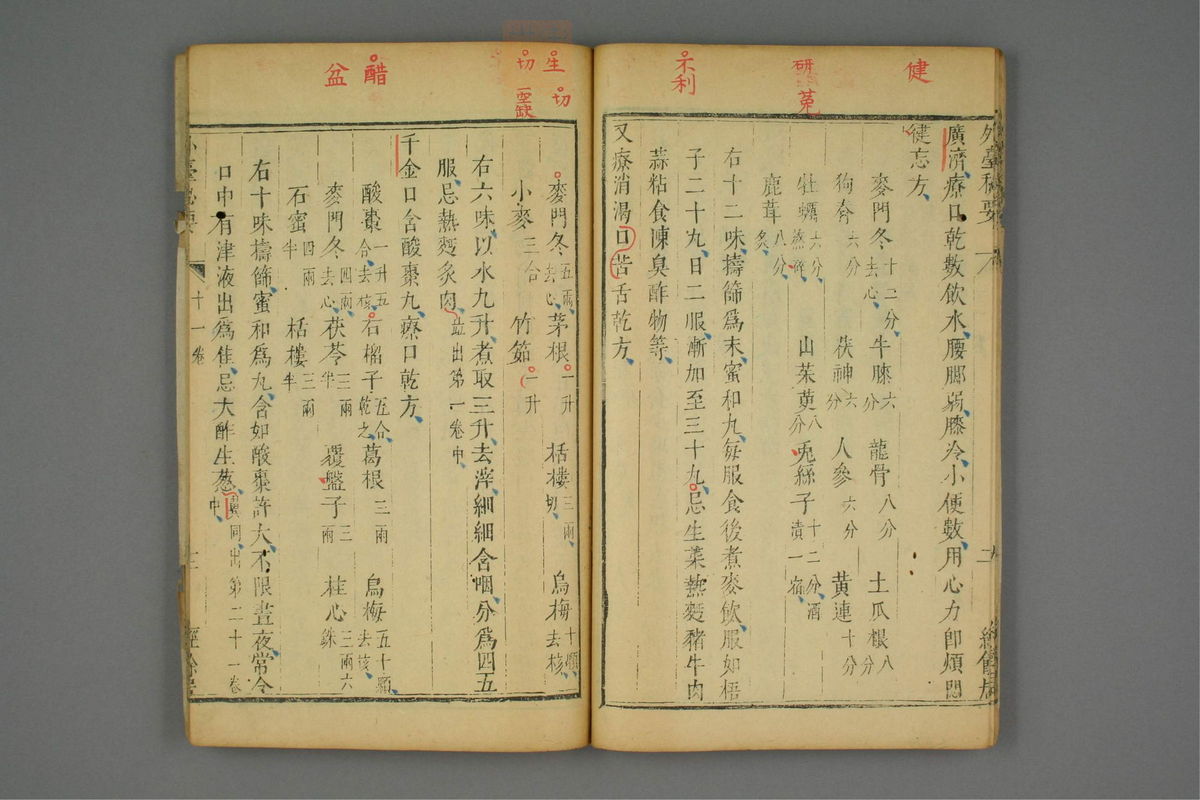 健
研
苐
不利
外臺秘要
廣濟療口乾數飲水腰脚弱膝冷小便數用心力卽煩悶
健忘方
麥門冬十二分去心 牛膝六分 龍骨八分 土瓜根八分
狗脊六分 茯神六分 人參六分 黃連十分
牡蠣六分熬碎 山茱萸八分 兎絲子十二分酒漬一宿
鹿茸八分炙
右十二味擣篩爲末蜜和丸每服食後煮麥飲服如梧
子二十丸日二服漸加至三十丸忌生菜熱麪豬牛肉
蒜粘食陳臭酢物等
又療消渴口苦舌乾方
生切
切
切一亞缺
醋
盆
麥門冬五兩去心 茅根一升 栝樓三兩切 烏梅十顆去核
小麥三合 竹茹一升
右六味以水九升煮取三升去滓細細含咽分爲四五
服忌熱麪炙肉並出第一卷中
千金口含酸棗丸療口乾方
酸棗一升五合去核 石榴子五合乾之 葛根三兩 烏梅五十顆去核
麥門冬四兩去心 茯苓三兩半 覆盤子三兩 桂心三兩六銖
石蜜四兩半 栝樓三兩半
右十味擣篩蜜和爲丸含如酸棗許大不限晝夜常令
口中有津液出爲佳忌大酢生葱翼同出第二十一卷中
十一卷